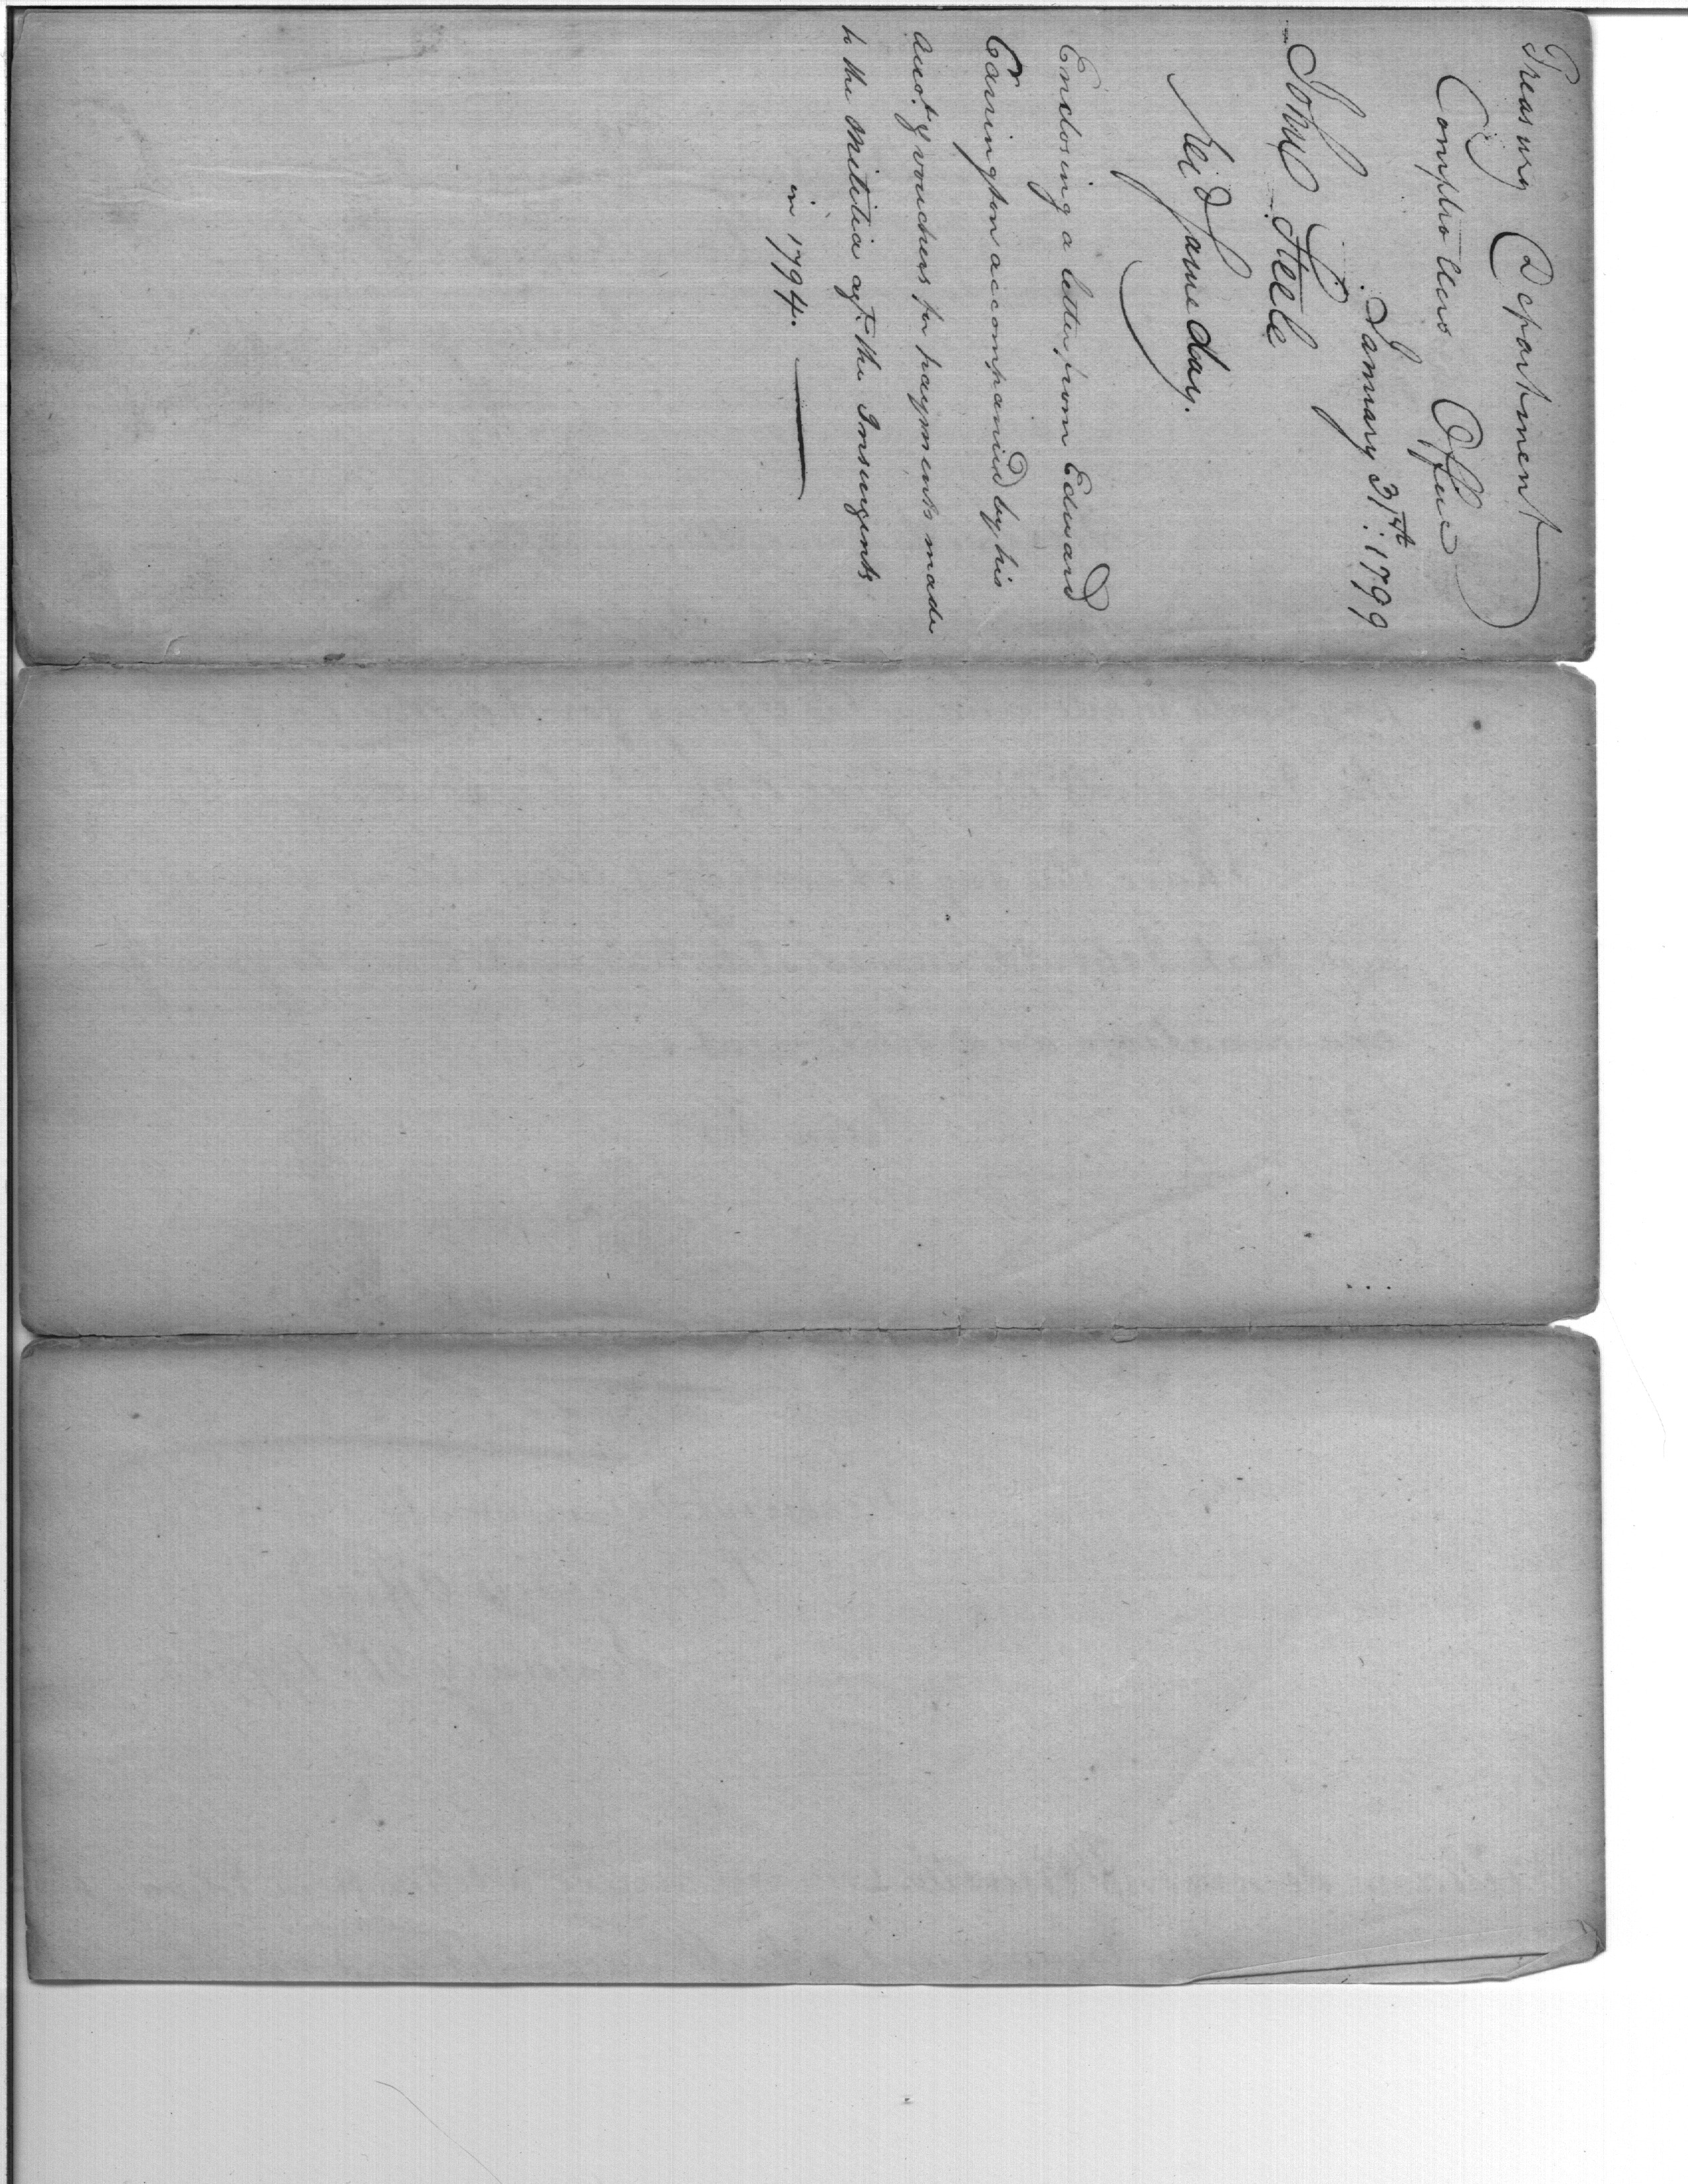 Treasury Department
Comptrollers Office
January 31st. 1799
John Steele
Rec'd same day.
Enclosing a letter from Edward
Carrington accompanied by his
Acct. of vouchers for payments made
to the Militia agt. the Insurgents
in 1794.